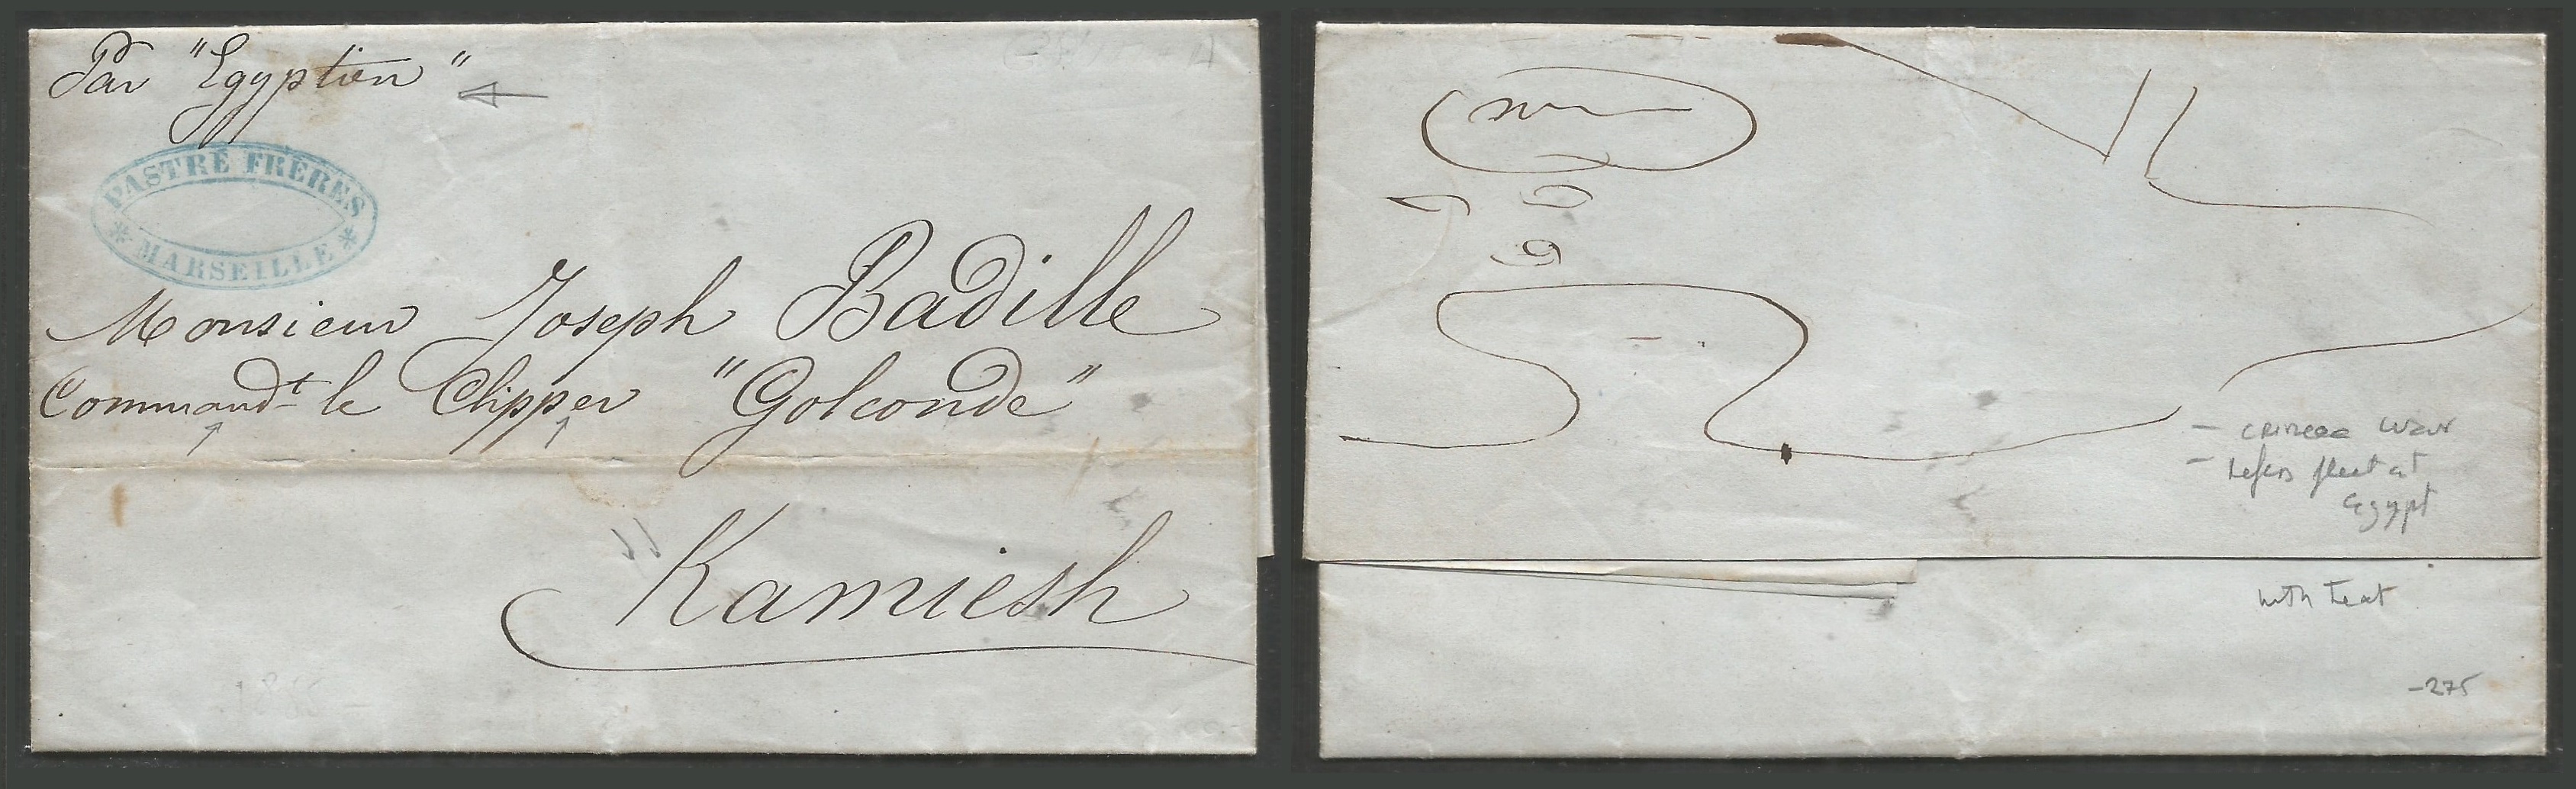 Par "Egyptien"
PASTRÉ FRERES
* MARSEILLE *
Monsieur Joseph Badille
Command.t le Clipper "Golconde"
Kamiesh
- CRIMEEA WAR
- Refers fleet at
Egypt
with text
-275